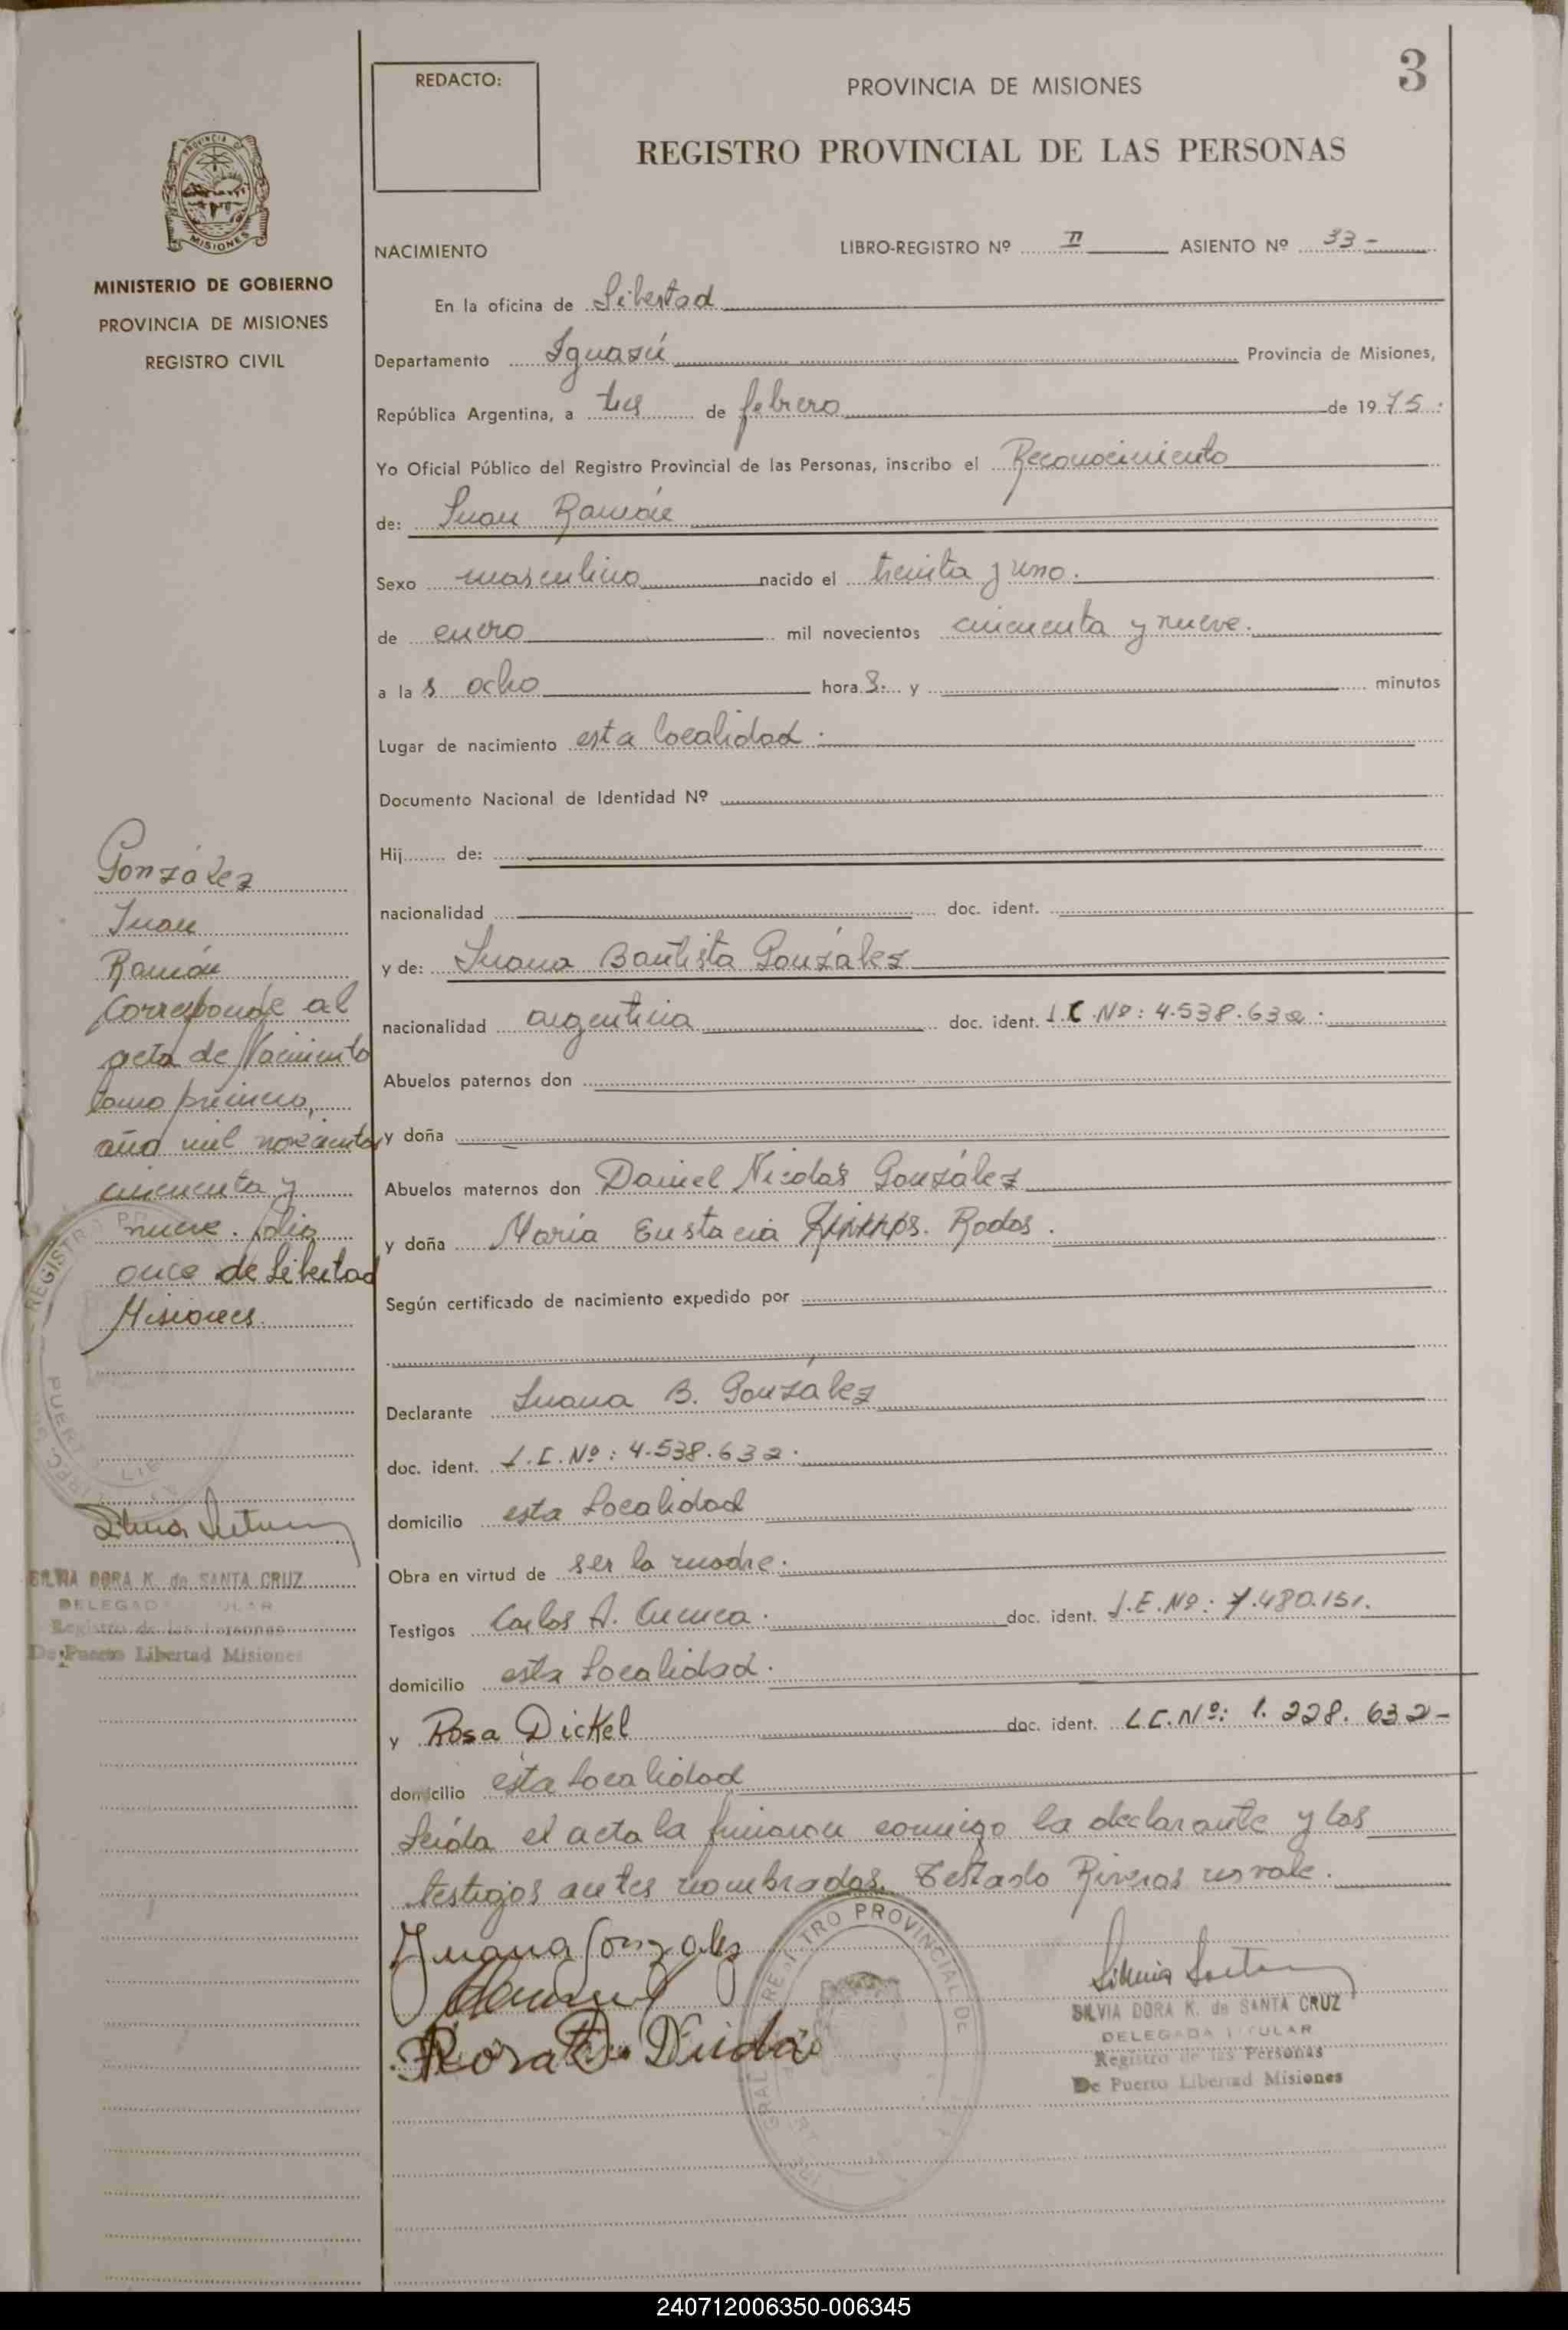 3
REDACTO:
PROVINCIA DE MISIONES
REGISTRO PROVINCIAL DE LAS PERSONAS
PROVINCIA DE
MISIONES
MINISTERIO DE GOBIERNO
PROVINCIA DE MISIONES
REGISTRO CIVIL
NACIMIENTO LIBRO-REGISTRO Nº II ASIENTO Nº 33-
En la oficina de Libertad
Departamento Iguazú Provincia de Misiones,
República Argentina, a tres de febrero de 1975.
Yo Oficial Público del Registro Provincial de las Personas, inscribo el Reconocimiento
de: Juan Ramón
Sexo masculino nacido el treinta y uno.
de enero mil novecientos cincuenta y nueve.
a la s ocho hora s. y minutos
Lugar de nacimiento esta localidad.
Documento Nacional de Identidad Nº
Hij de:
nacionalidad doc. ident.
y de: Juana Bautista González
nacionalidad argentina doc. ident. L.C. Nº: 4.538.632.
Abuelos paternos don
y doña
Abuelos maternos don Daniel Nicolás González
y doña María Eustacia Rodas.
Según certificado de nacimiento expedido por
Declarante Juana B. González
doc. ident. L.C. Nº: 4.538.632.
domicilio esta Localidad
Obra en virtud de ser la madre.
Testigos Carlos A. Cuenca. doc. ident. L.E. Nº: 7.480.151.
domicilio esta Localidad.
y Rosa Dickel doc. ident. L.C. Nº: 1.228.632-
domicilio esta Localidad
Leída el acta la firman conmigo la declarante y los
testigos antes nombrados. Testado Riveros no vale.
Juana Gonzalez
Rosa D. de
REGISTRO PROVINCIAL DE
SILVIA DORA K. de SANTA CRUZ
DELEGADA TITULAR
Registro de las Personas
De Puerto Libertad Misiones
González
Juan
Ramón
Corresponde al
acta de Nacimiento
tomo primero,
año mil novecientos
cincuenta y
nueve. folio
once de Libertad
Misiones.
SILVIA DORA K. de SANTA CRUZ
DELEGADA TITULAR
Registro de las Personas
De Puerto Libertad Misiones
240712006350-006345